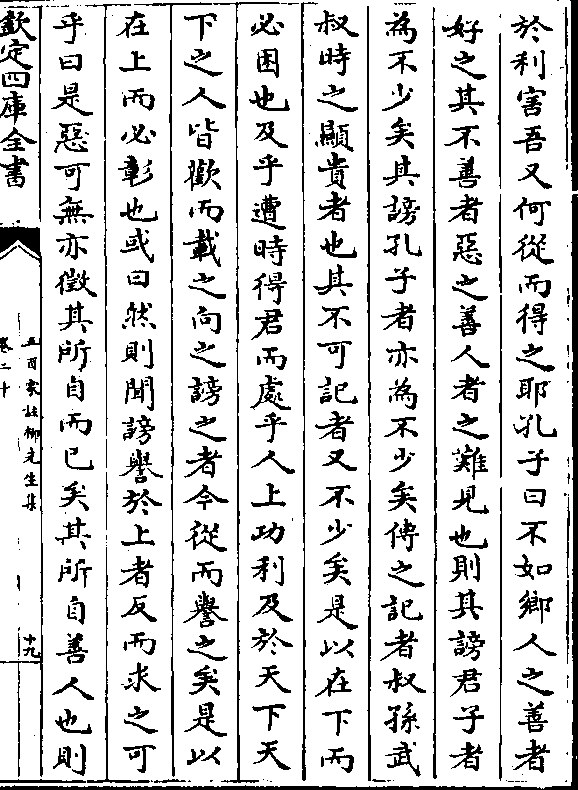 於利害吾又何從而得之耶孔子曰不如鄉人之善者
好之其不善者惡之善人者之難見也則其謗君子者
為不少矣其謗孔子者亦為不少矣傳之記者叔孫武
叔時之顯貴者也其不可記者又不少矣是以在下而
必困也及乎遭時得君而處乎人上功利及於天下天
下之人皆歡而載之向之謗之者今從而譽之矣是以
在上而必彰也或曰然則聞謗譽於上者反而求之可
乎曰是惡可無亦徵其所自而已矣其所自善人也則
欽定四庫全書
五百家註柳先生集
卷二十
十九